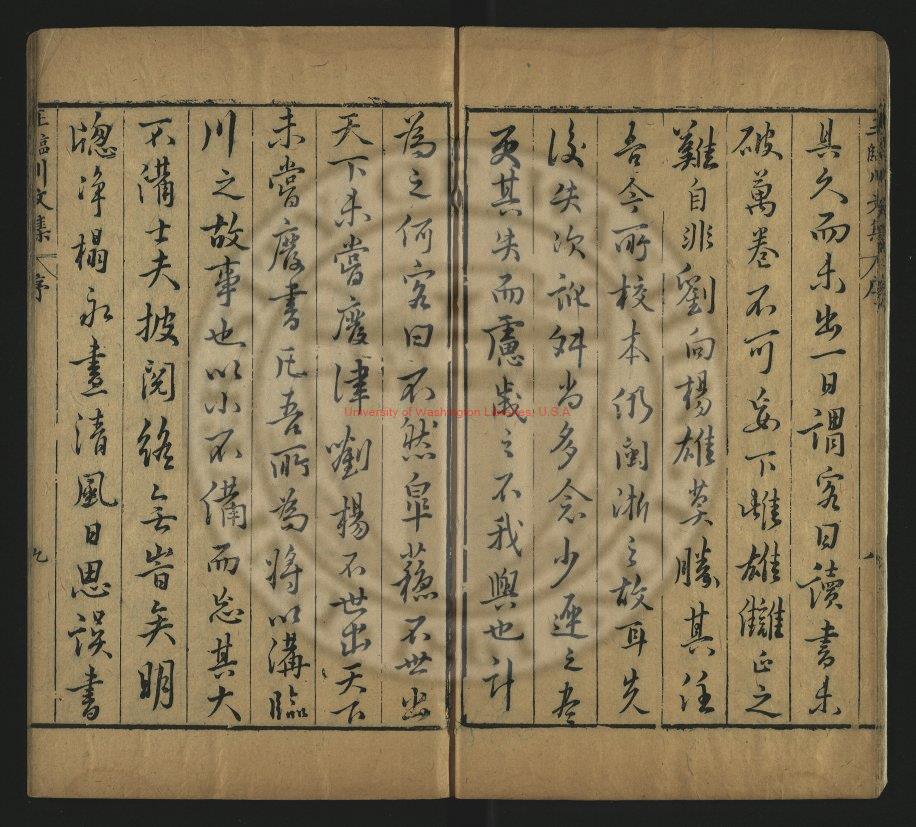 具久而未出一日謂客曰讀書未
破萬卷不可妄下雌雄讎正之
難自非劉向楊雄莫勝其任
吾今所校本仍閩浙之故耳先
後失次訛舛尚多念少遲之盡
更其失而慮歲之不我與也計
為之何客曰不然皐蘓不世出
天下未嘗廢律劉楊不世出天下
未嘗廢書凡吾所為將以備臨
川之故事也以小不備而忘其大
不備士夫披閱終無時矣明
牕净榻永晝清風日思誤書
王臨川文集
序
八
王臨川文集
序
九
University of Washington Libraries, U.S.A